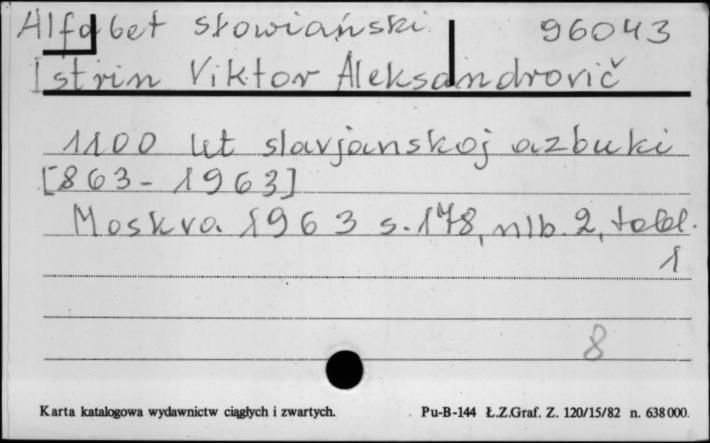 Alfabet słowiański 96043
Istrin Viktor Aleksandrovič
1100 let slavjanskoj azbuki
[863-1963]
Moskva 1963 s.178, nlb. 2, tabl.
1
8
Karta katalogowa wydawnictw ciągłych i zwartych. Pu-B-144 Ł.Z.Graf. Z. 120/15/82 n. 638000.